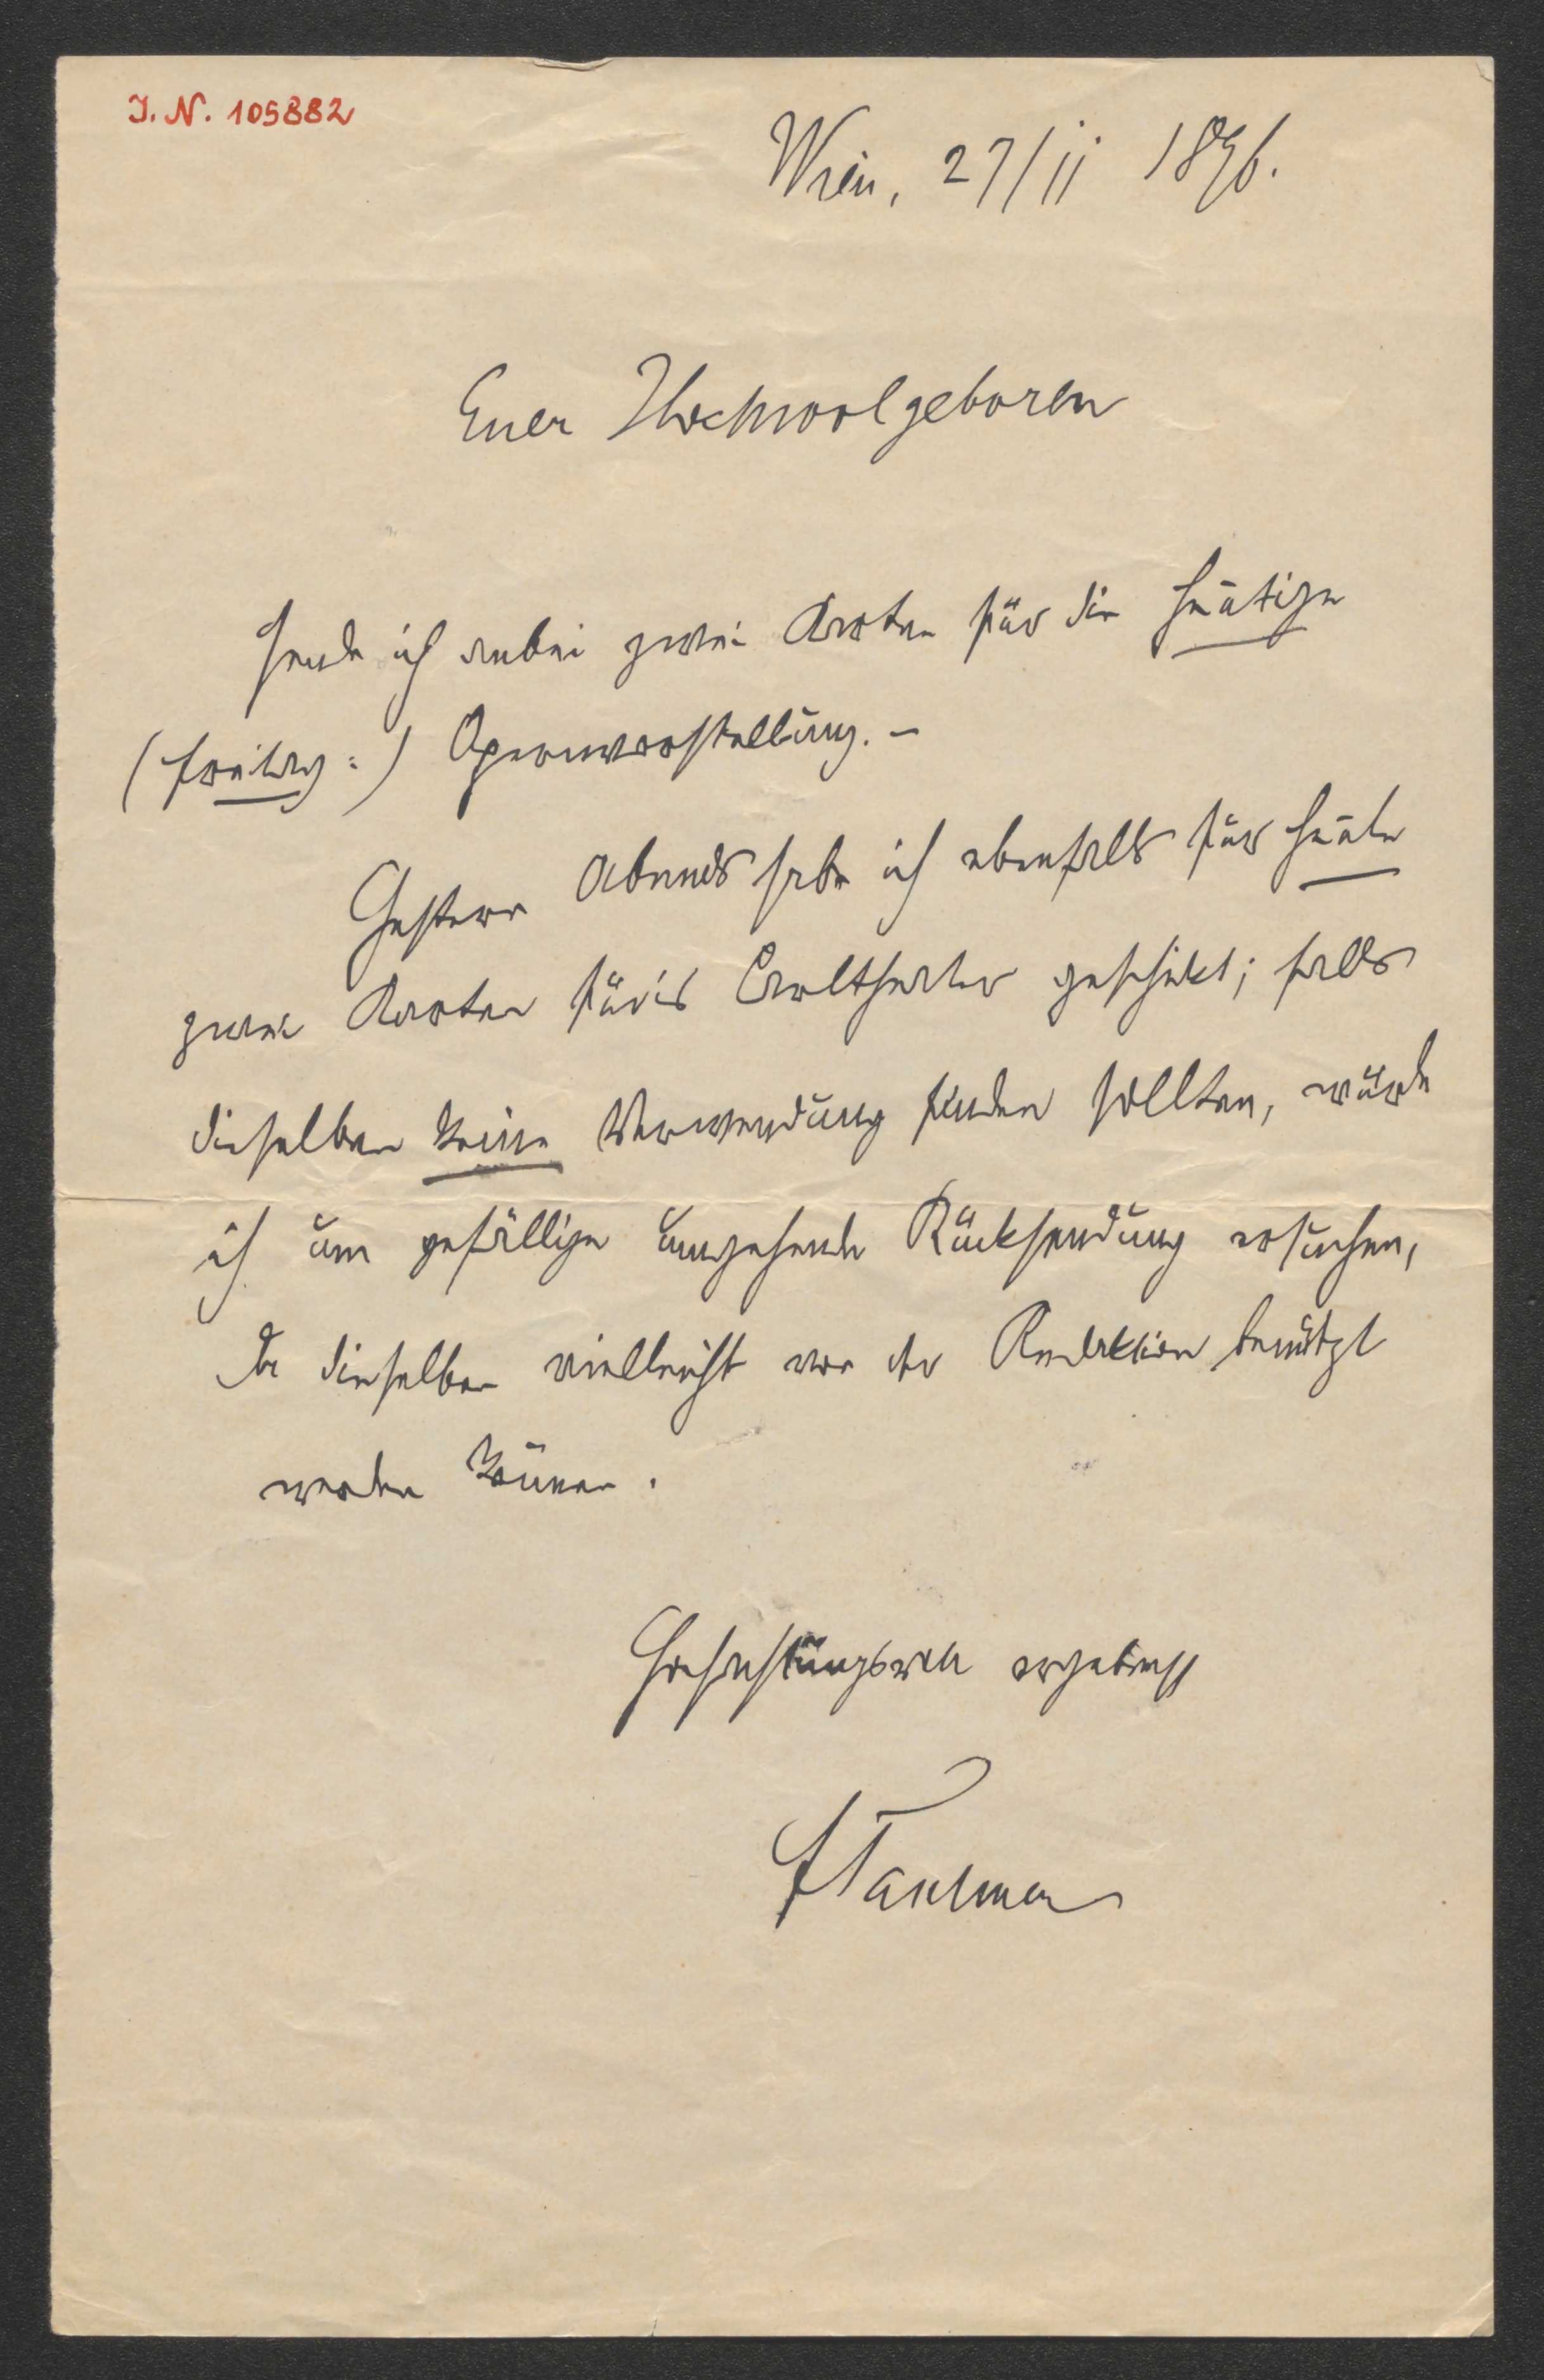 J. N. 105882
Wien, 27/ii 1896.
Euer Hochwolgeboren
sende ich anbei zwei Karten für die heutige
(Freitag:) Opernvorstellung. –
Gestern Abends habe ich ebenfalls für heute
zwei Karten für's Carltheater geschickt; falls
dieselben keine Verwendung finden sollten, würde
ich um gefällige umgehende Rücksendung ersuchen,
da dieselben vielleicht von der Redaktion benützt
werden können.
Hochachtungsvoll ergebenst